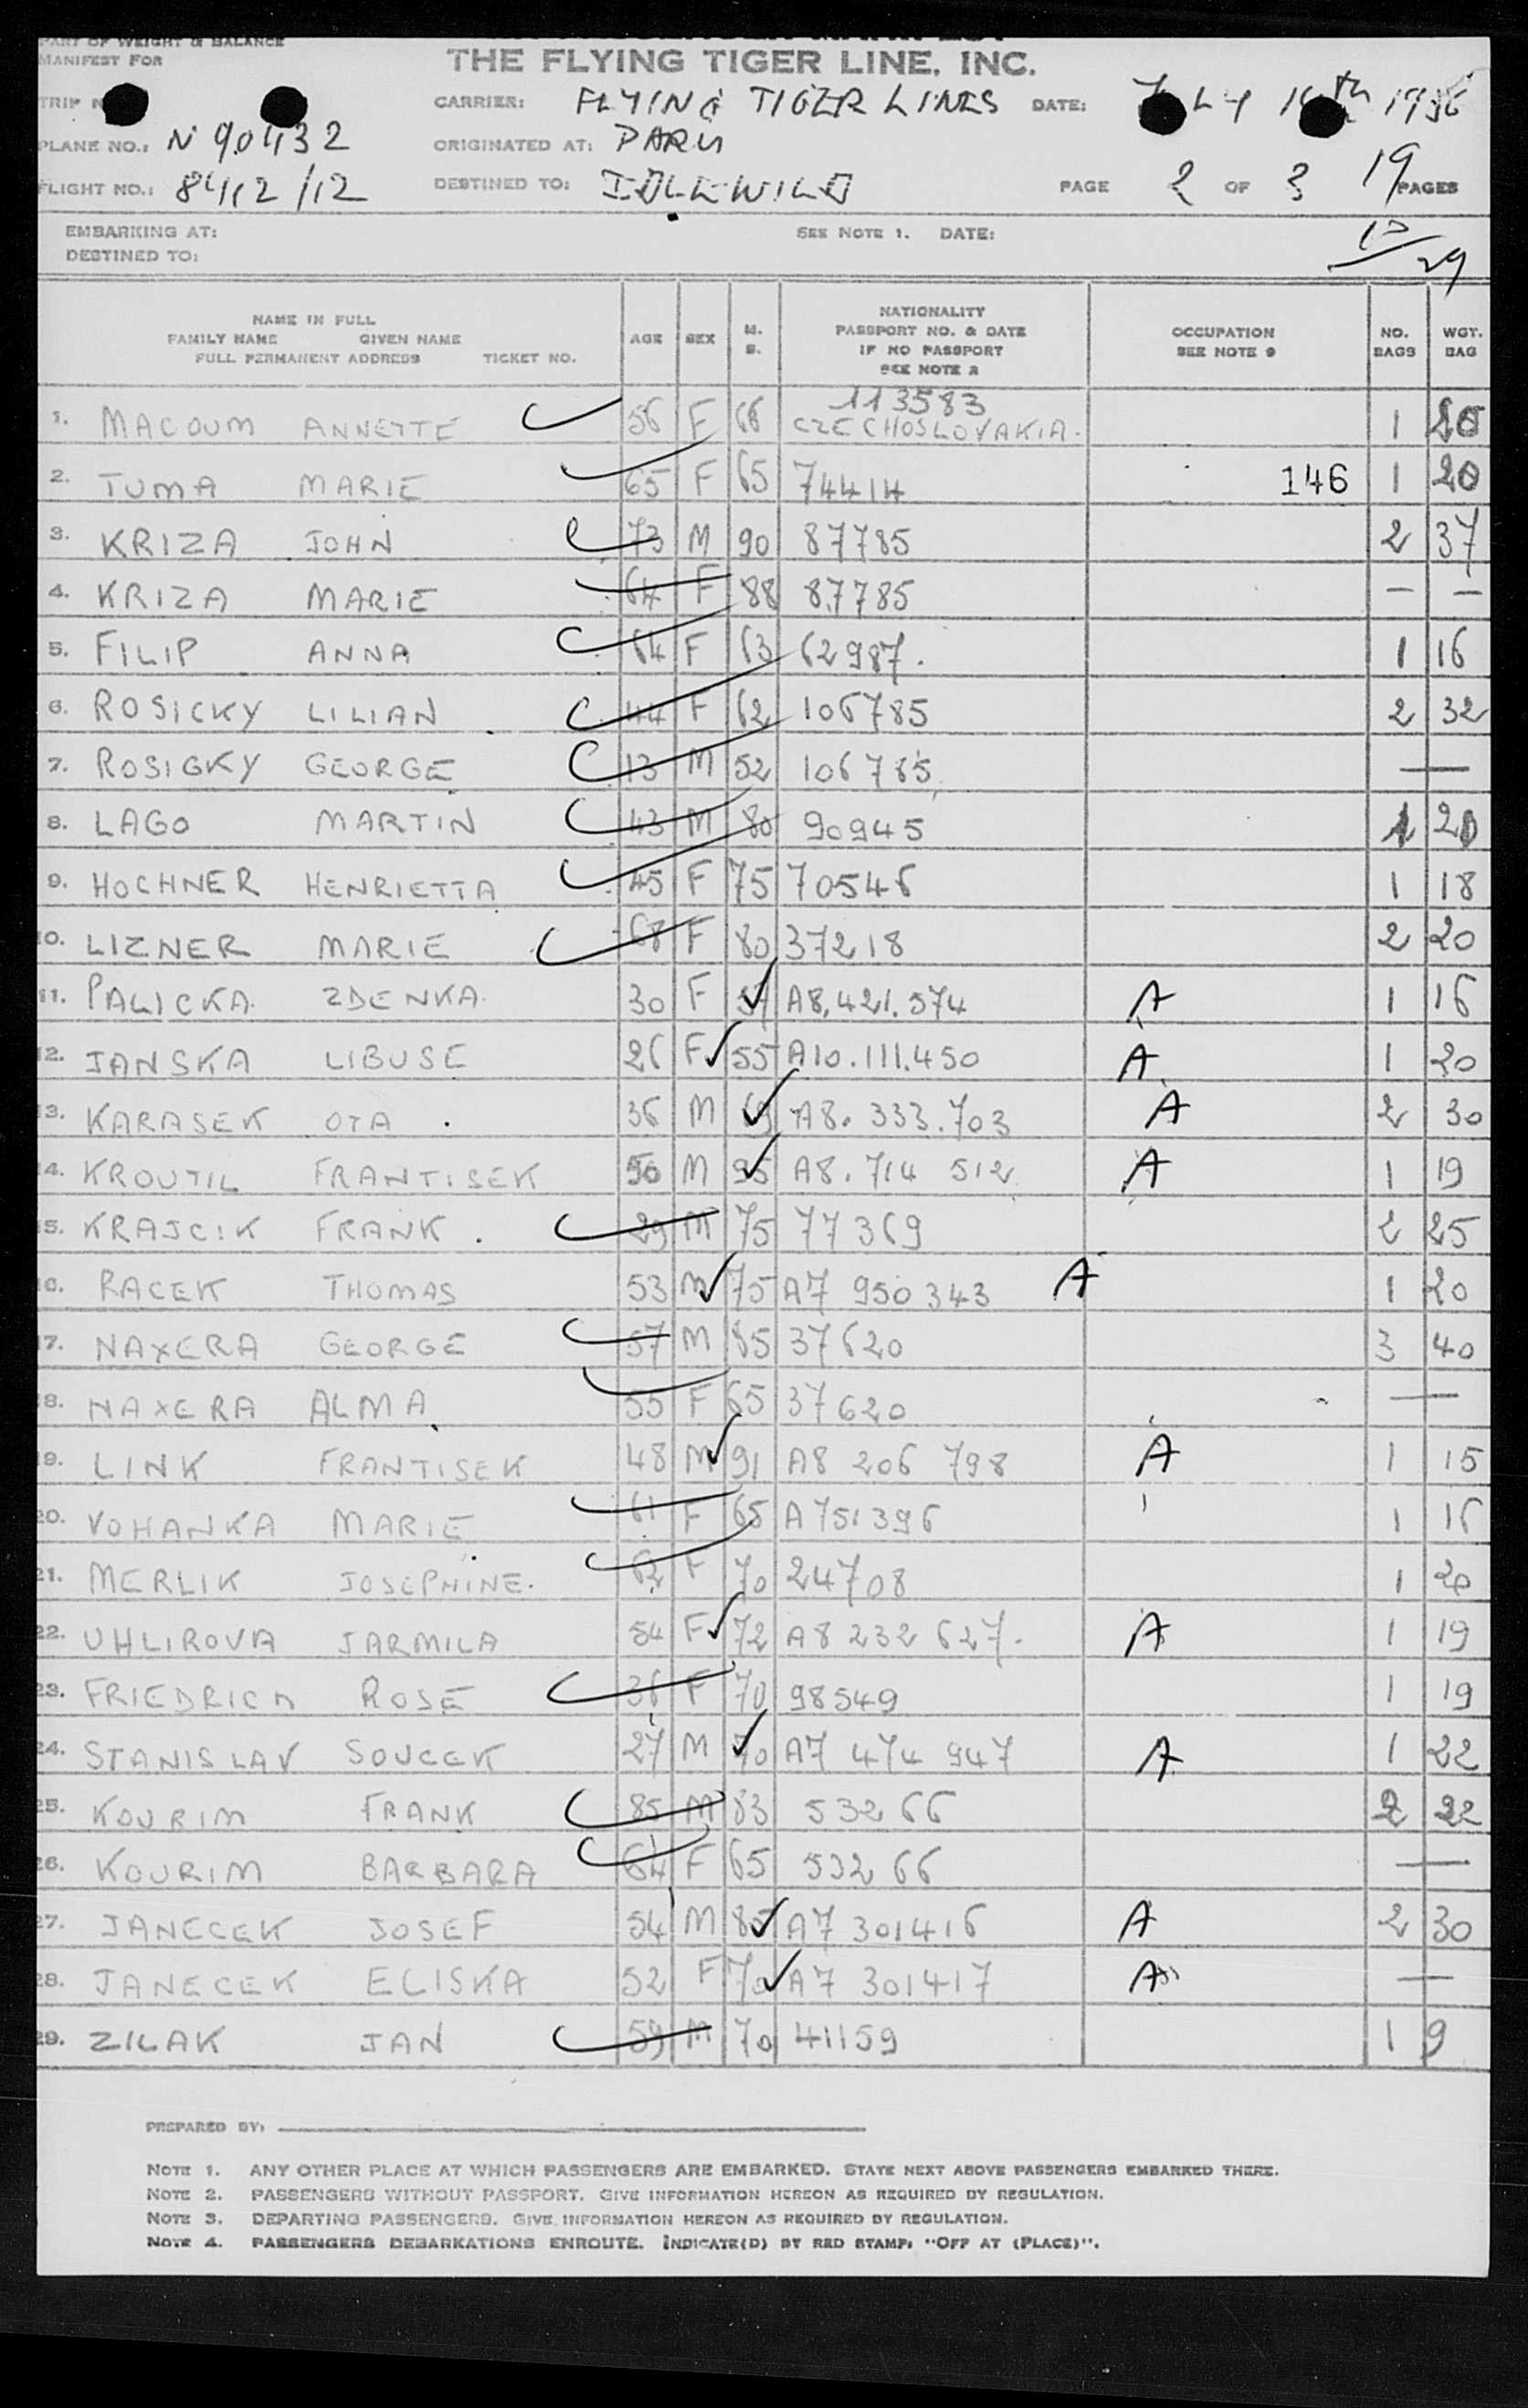 PART OF WEIGHT & BALANCE
MANIFEST FOR
THE FLYING TIGER LINE, INC.
TRIP
CARRIER: FLYING TIGER LINES DATE: 1956
PLANE NO.: N 90432 ORIGINATED AT: PARIS
FLIGHT NO.: 8412/12 DESTINED TO: IDLEWILD PAGE 2 OF 3 PAGES 19
EMBARKING AT: SEE NOTE 1. DATE:
DESTINED TO: 29
NAME IN FULL
FAMILY NAME GIVEN NAME
FULL PERMANENT ADDRESS TICKET NO. AGE SEX M. S. NATIONALITY PASSPORT NO. & DATE IF NO PASSPORT SEE NOTE 2 OCCUPATION SEE NOTE 9 NO. BAGS WGT. BAG
113583
1. MACOUM ANNETTE 56 F 66 CZECHOSLOVAKIA. 1 20
2. TUMA MARIE 65 F 65 74414 146 1 20
3. KRIZA JOHN 73 M 90 87785 2 37
4. KRIZA MARIE 64 F 88 87785 — —
5. FILIP ANNA 64 F 63 62987. 1 16
6. ROSICKY LILIAN 44 F 62 106785 2 32
7. ROSIGKY GEORGE 13 M 52 106785 —
8. LAGO MARTIN 43 M 80 90945 1 20
9. HOCHNER HENRIETTA 45 F 75 70546 1 18
10. LIZNER MARIE 68 F 80 37218 2 20
11. PALICKA ZDENKA 30 F 57 A8.421.574 A 1 16
12. JANSKA LIBUSE 26 F 55 A10.111.450 A 1 20
13. KARASEK OTA 36 M A8.333.703 A 2 30
14. KROUTIL FRANTISEK 50 M 95 A8.714 512 A 1 19
15. KRAJCIK FRANK 29 M 75 77369 2 25
16. RACEK THOMAS 53 M 75 A7 950343 A 1 20
17. NAXERA GEORGE 57 M 85 37620 3 40
18. NAXERA ALMA 55 F 65 37620 —
19. LINK FRANTISEK 48 M 91 A8 206 798 A 1 15
20. VOHANKA MARIE 61 F 65 A751396 1 16
21. MERLIK JOSEPHINE. 62 F 70 24708 1 20
22. UHLIROVA JARMILA 54 F 72 A8 232 627. A 1 19
23. FRIEDRICH ROSE 36 F 70 98549 1 19
24. STANISLAV SOUCEK 27 M 70 A7 474 947 A 1 22
25. KOURIM FRANK 85 M 83 53266 2 22
26. KOURIM BARBARA 64 F 65 53266 —
27. JANECEK JOSEF 54 M 85 A7 301416 A 2 30
28. JANECEK ELISKA 52 F 70 A7 301417 A —
29. ZILAK JAN 59 M 70 41159 1 9
PREPARED BY:
NOTE 1. ANY OTHER PLACE AT WHICH PASSENGERS ARE EMBARKED. STATE NEXT ABOVE PASSENGERS EMBARKED THERE.
NOTE 2. PASSENGERS WITHOUT PASSPORT. GIVE INFORMATION HEREON AS REQUIRED BY REGULATION.
NOTE 3. DEPARTING PASSENGERS. GIVE INFORMATION HEREON AS REQUIRED BY REGULATION.
NOTE 4. PASSENGERS DEBARKATIONS ENROUTE. INDICATE(D) BY RED STAMP: "OFF AT (PLACE)".